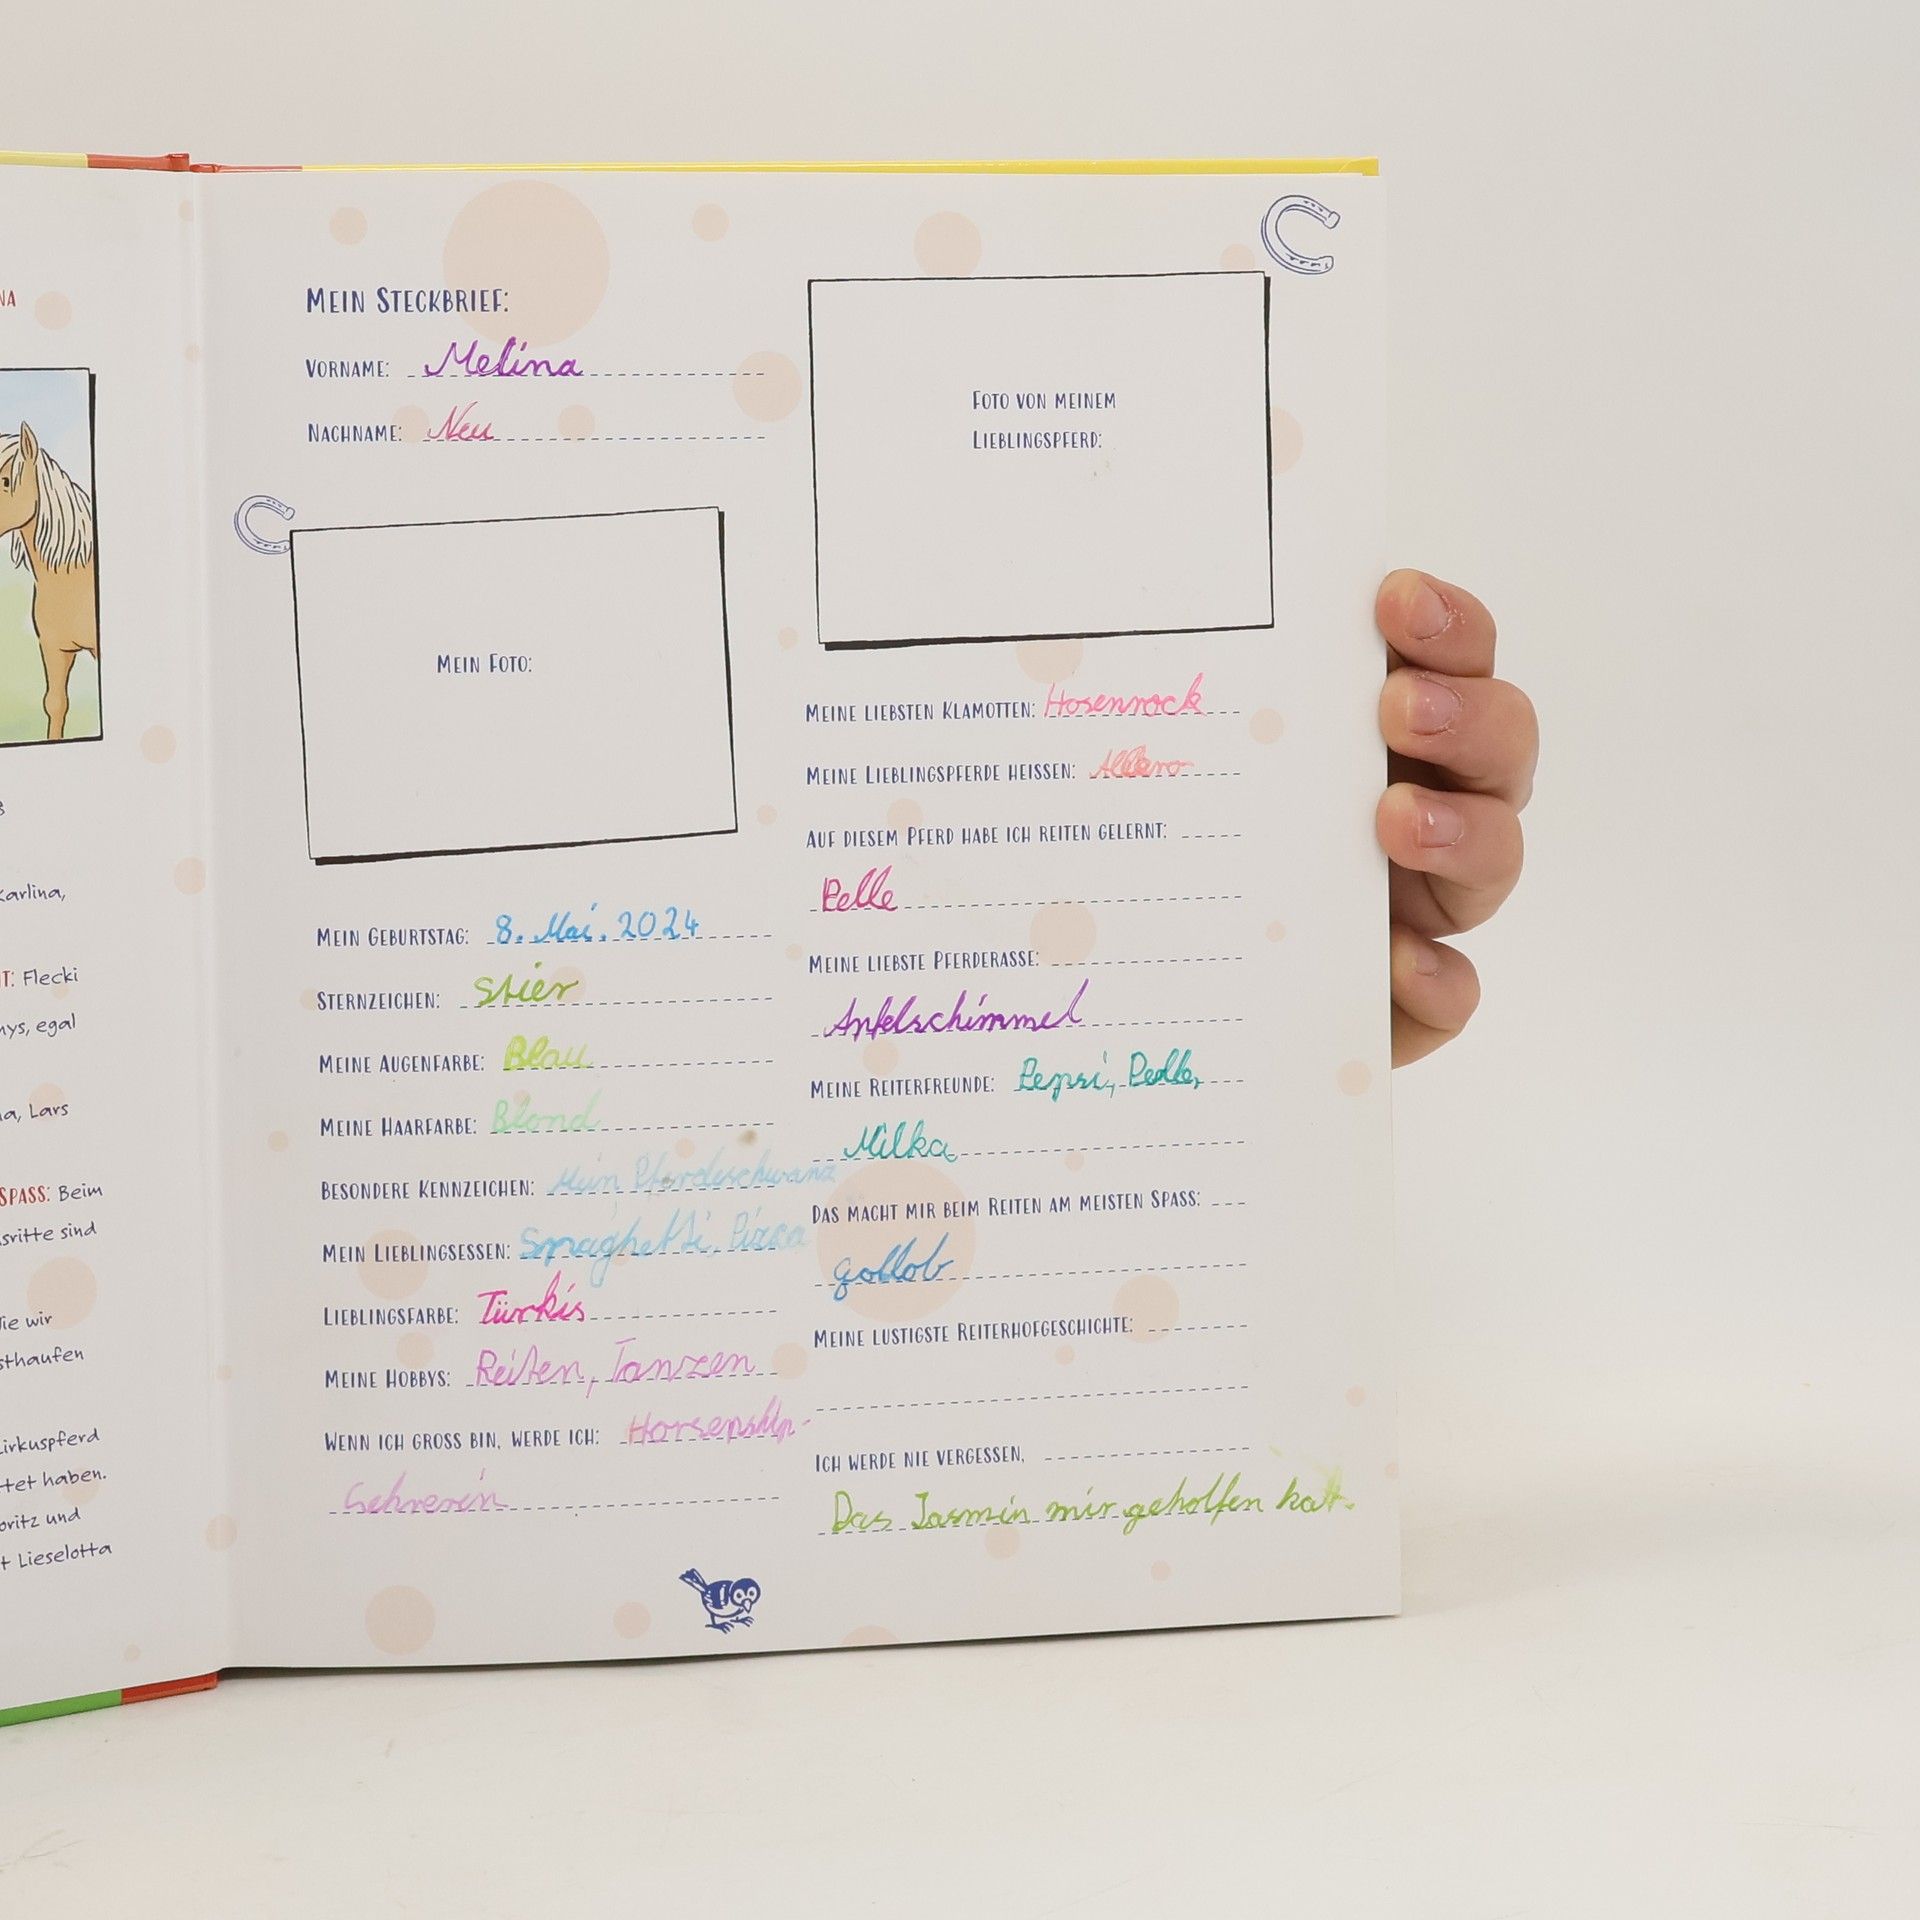 NA
karlina,
T: Flecki
nys, egal
na, Lars
SPASS: Beim
sritte sind
Wie wir
sthaufen
Zirkuspferd
tet haben.
oritz und
t Lieselotta
MEIN STECKBRIEF:
VORNAME: Melina
NACHNAME: Neu
MEIN FOTO:
MEIN GEBURTSTAG: 8. Mai. 2024
STERNZEICHEN: Stier
MEINE AUGENFARBE: Blau
MEINE HAARFARBE: Blond
BESONDERE KENNZEICHEN: Mein Pferdeschwanz
MEIN LIEBLINGSESSEN: Spaghetti, Pizza
LIEBLINGSFARBE: Türkis
MEINE HOBBYS: Reiten, Tanzen
WENN ICH GROSS BIN, WERDE ICH:
FOTO VON MEINEM
LIEBLINGSPFERD:
MEINE LIEBSTEN KLAMOTTEN: Hosenrock
MEINE LIEBLINGSPFERDE HEISSEN:
AUF DIESEM PFERD HABE ICH REITEN GELERNT:
Pelle
MEINE LIEBSTE PFERDERASSE:
Apfelschimmel
MEINE REITERFREUNDE: Pepsi, Pelle,
Milka
DAS MACHT MIR BEIM REITEN AM MEISTEN SPASS:
gollob
MEINE LUSTIGSTE REITERHOFGESCHICHTE:
ICH WERDE NIE VERGESSEN,
Das Jasmin mir geholfen hat.